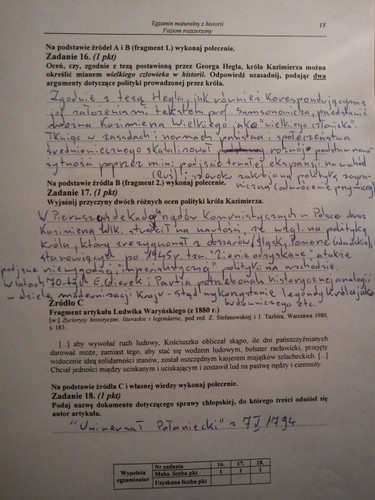 Egzamin maturalny z historii
Poziom rozszerzony
15
Na podstawie źródeł A i B (fragment 1.) wykonaj polecenie.
Zadanie 16. (1 pkt)
Oceń, czy, zgodnie z tezą postawioną przez Georga Hegla, króla Kazimierza można
określić mianem wielkiego człowieka w historii. Odpowiedź uzasadnij, podając dwa
argumenty dotyczące polityki prowadzonej przez króla.
Zgodnie z tezą Hegla, jak również korespondującym z
jej założeniami tekstem prof. Samsonowicza, przedstawia
można Kazimierza Wielkiego jako "wielkiego człowieka".
Tkwiąc w zasadach i normach państwa i społeczeństwa
średniowiecznego stabilizował rozwój podstaw nowo
żytności poprzez min: podjęcie trwałej ekspansji na wschód
(Ruś) i szeroko zakrojoną politykę zagra-
niczną (odnoszenie przymierzy)
Na podstawie źródła B (fragment 2.) wykonaj polecenie.
Zadanie 17. (1 pkt)
Wyjaśnij przyczyny dwóch różnych ocen polityki króla Kazimierza.
W Pierwszych dekadach rządów komunistycznych w Polsce
Kazimierz Wlk. stracił na wartości, ze wzgl. na politykę
króla, który zrezygnował z obszarów (Śląsk, Pomorze Gdańskie)
stanowiących po 1945 r. tzw. "Ziemie odzyskane", a także
podjęcie niewygodnej, "imperialistycznej" polityki na wschodzie.
w latach 70-tych E. Gierek i Partia potrzebowali historycznej analogii
w dziele modernizacji Kraju - stąd wykorzystanie legendy Króla jako
budowniczego etc.
Źródło C
Fragment artykułu Ludwika Waryńskiego (z 1880 r.)
[w:] Życiorysy historyczne, literackie i legendarne, pod red. Z. Stefanowskiej i J. Tazbira, Warszawa 1980,
s. 183.
[...] aby wywołać ruch ludowy, Kościuszko obliczał skąpo, ile dni pańszczyźnianych
darować może; zamiast tego, aby stać się wodzem ludowym, bohater racławicki, przejęty
widocznie ideą solidarności stanów, został oszczędnym kasjerem majątków szlacheckich. [...]
Chciał jedności między uciskanym i uciskającymi i zostawił lud na pastwę nędzy i ciemnoty.
Na podstawie źródła C i własnej wiedzy wykonaj polecenie.
Zadanie 18. (1 pkt)
Podaj nazwę dokumentu dotyczącego sprawy chłopskiej, do którego treści odniósł się
autor artykułu.
"Uniwersał Połaniecki" z 7 V 1794
Wypełnia egzaminator
Nr zadania 16. 17. 18.
Maks. liczba pkt 1 1 1
Uzyskana liczba pkt